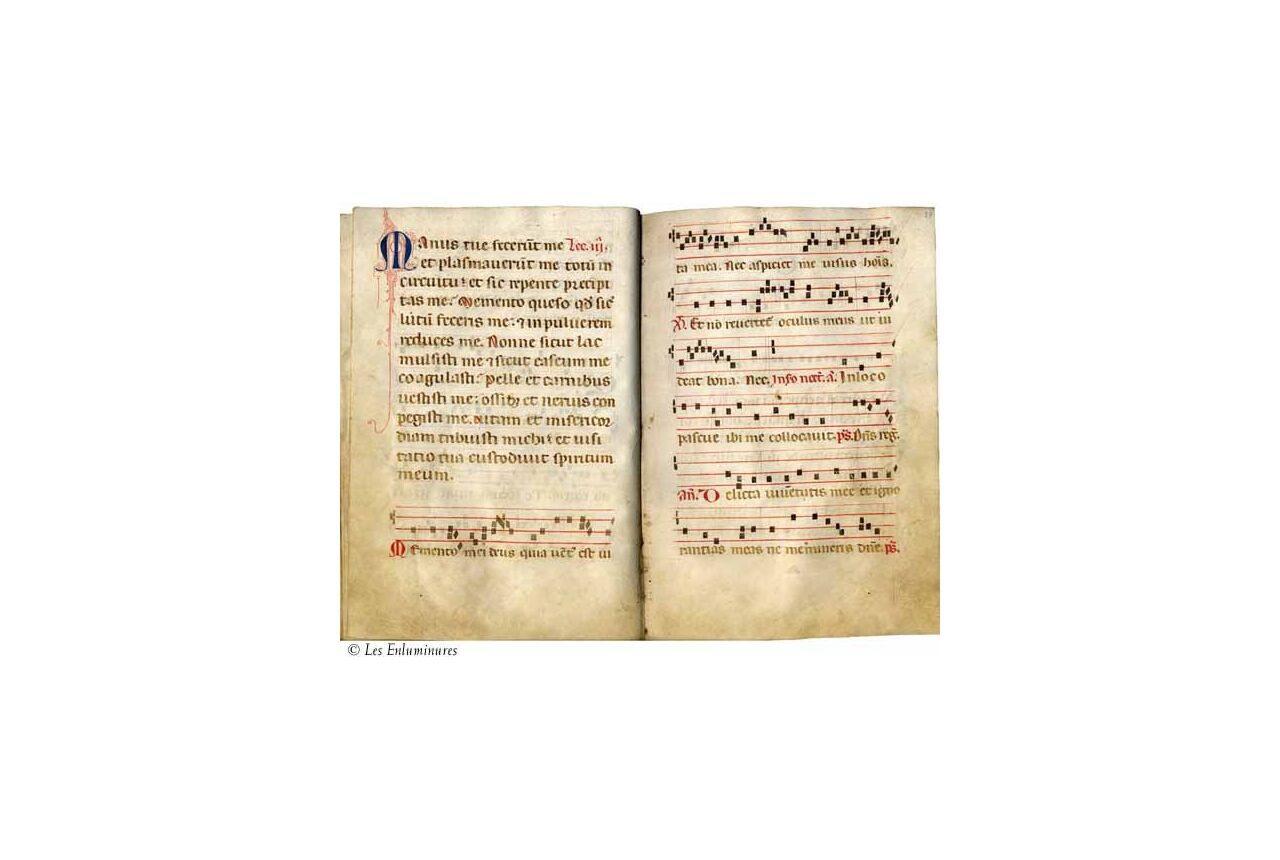 Manus tue fecerūt me Lec. iij.
et plasmaverūt me totū in
circuitu: et sic repente precipi
tas me? Memento queso qd sic
lutū feceris me: ⁊ in pulverem
reduces me. Nonne sicut lac
mulsisti me ⁊ sicut caseum me
coagulasti? pelle et carnibus
vestisti me: ossibʒ et nervis con
pegisti me. Vitam et misericor
diam tribuisti michi: et visi
tatio tua custodivit spiritum
meum.
Memento mei deus quia vētꝰ est vi
ta mea. Nec aspiciet me visus hōis.
℣. Et nō revertet oculus meus ut vi
deat bona. Nec. In loco
pascue ibi me collocavit. ps. Dn̄s reg̃.
añ. Delicta iuvētutis mee et igno
rantias meas ne memineris dn̄e. ps.
© Les Enluminures